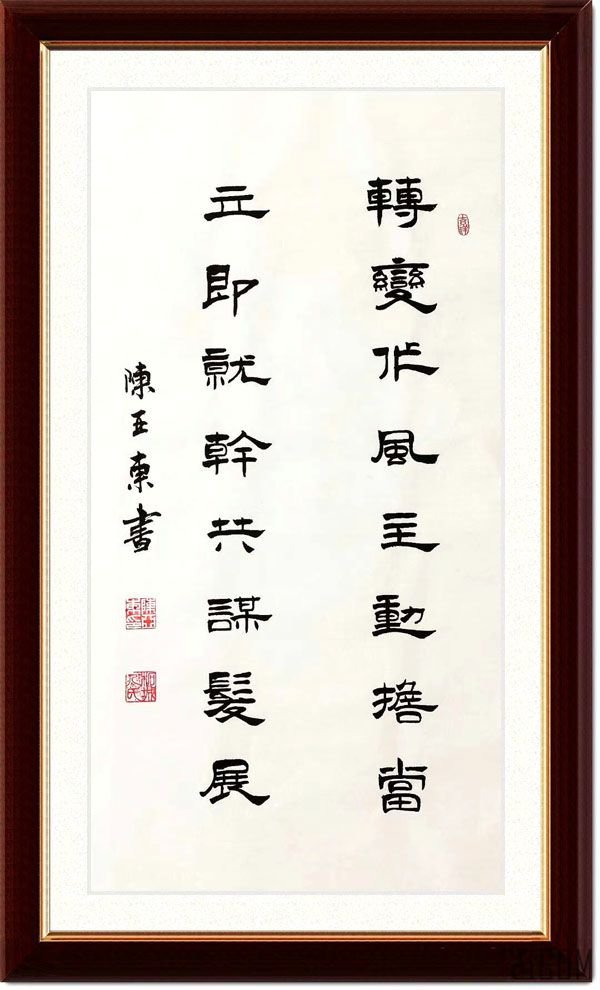 轉變作風主動擔當
立即就幹共謀髮展
陳亞東書